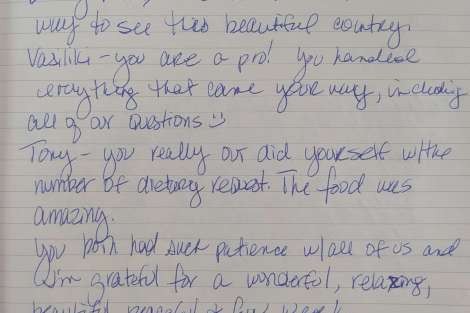 way to see this beautiful country.
Vasiliki - you are a pro! You handled
everything that came your way, including
all of our questions ☺
Tony - you really out did yourself w/the
number of dietary request. The food was
amazing.
You both had such patience w/all of us and
I'm grateful for a wonderful, relaxing,
beautiful, peaceful & fun week!